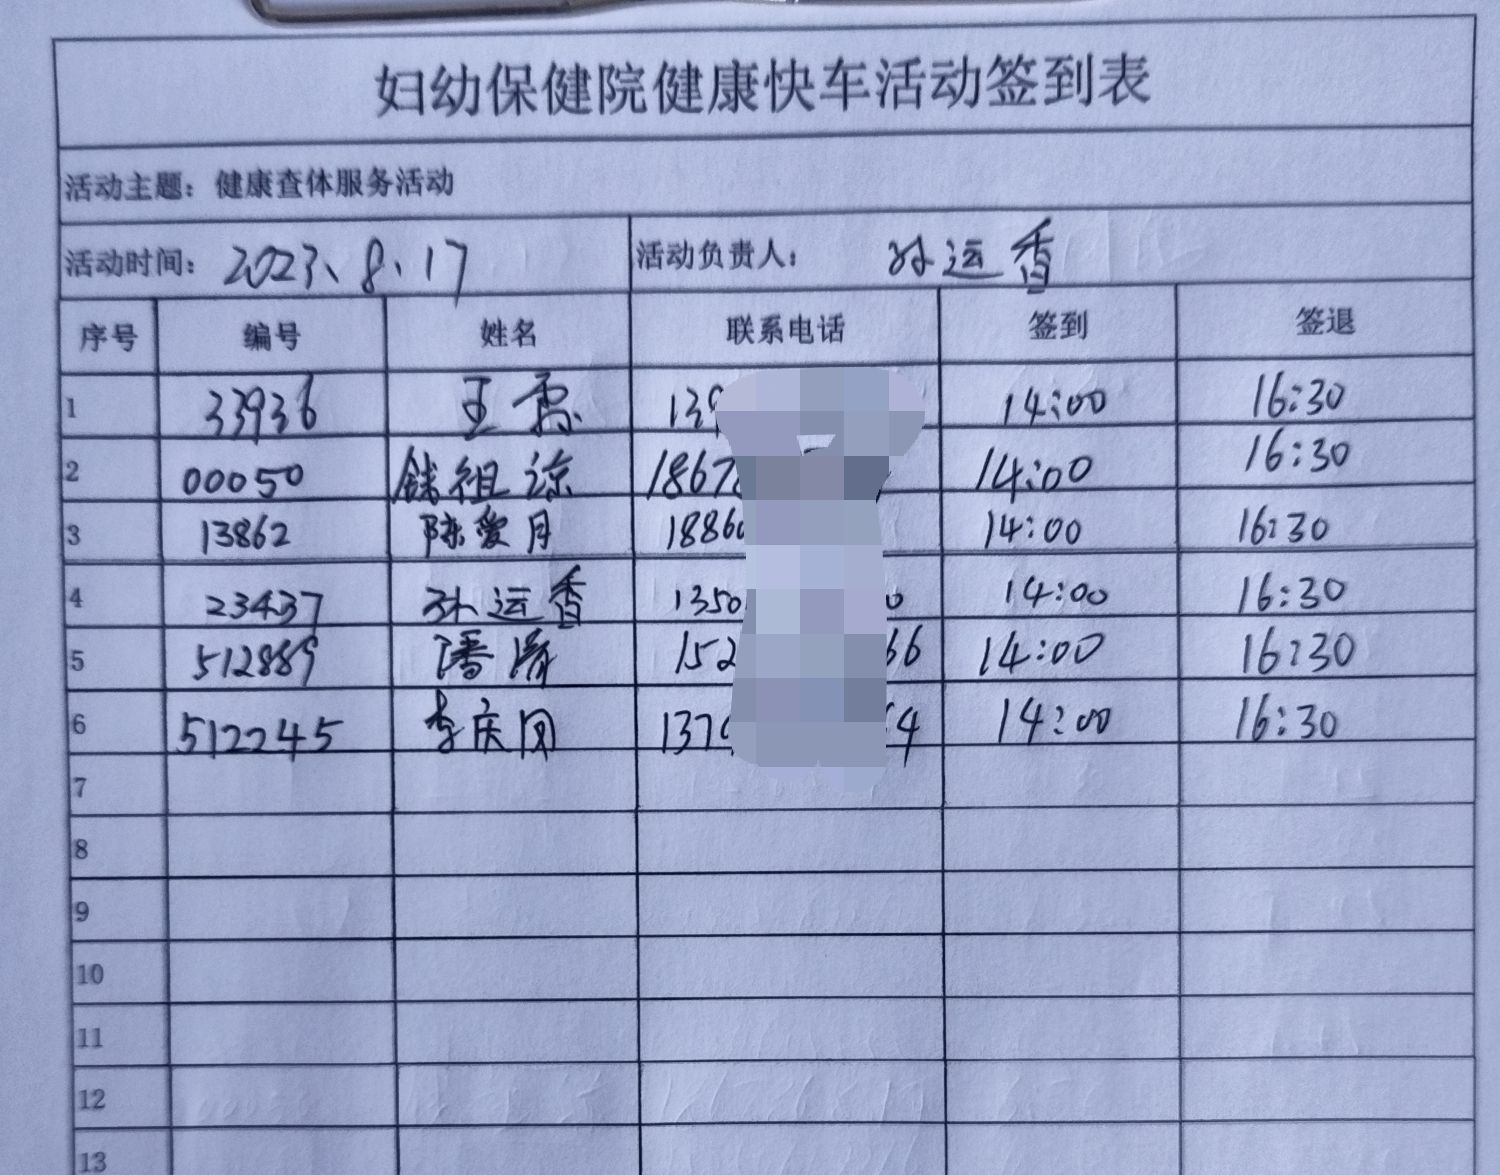 妇幼保健院健康快车活动签到表
活动主题：健康查体服务活动
活动时间：2023、8、17 活动负责人： 孙运香
序号 编号 姓名 联系电话 签到 签退
1 33936 王霞 139 14:00 16:30
2 00050 钱祖谅 1867 14:00 16:30
3 13862 陈爱月 1886 14:00 16:30
4 23437 孙运香 1350 0 14:00 16:30
5 512889 潘 152 66 14:00 16:30
6 512245 李庆 137 4 14:00 16:30
7
8
9
10
11
12
13